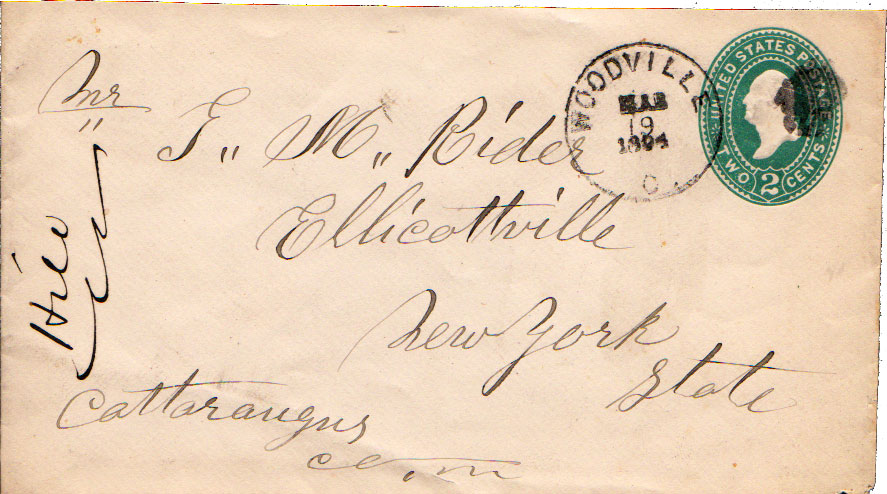 Mr
G,, M,, Rider
Ellicottville
New York
State
Cattaraugus
WOODVILLE
MAR
19
1894
O.
UNITED STATES POSTAGE
TWO 2 CENTS